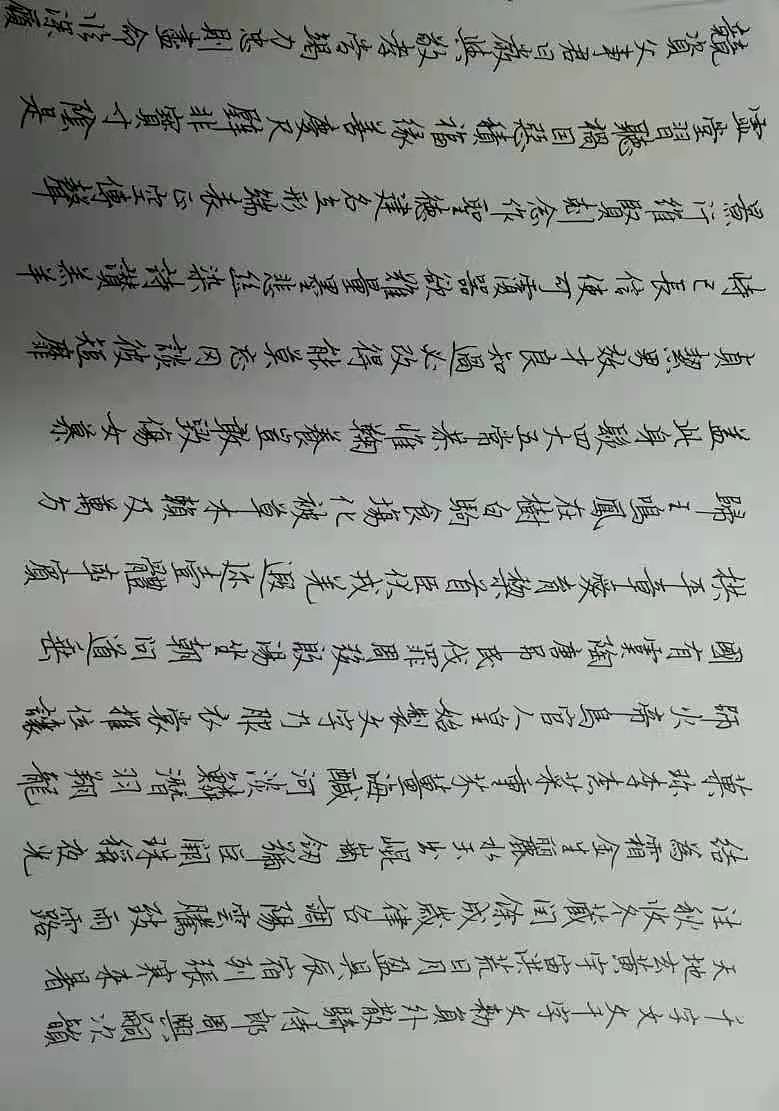 千字文千字文勅員外散騎侍郎周興嗣次韻
天地玄黃宇宙洪荒日月盈昃辰宿列張寒來暑
往秋收冬藏閏餘成歲律召調陽雲騰致雨露
結為霜金生麗水玉出崐崗劒號巨闕珠稱夜光
菓珍李柰菜重芥薑海醎河淡鱗潛羽翔龍
師火帝鳥官人皇始製文字乃服衣裳推位讓
國有虞陶唐弔民伐罪周發殷湯坐朝問道垂
拱平章愛育黎首臣伏戎羌遐邇壹體率賓
歸王鳴鳳在樹白駒食場化被草木賴及萬方
蓋此身髮四大五常恭惟鞠養豈敢毀傷女慕
貞絜男效才良知過必改得能莫忘罔談彼短靡
恃己長信使可覆器欲難量墨悲絲染詩讚羔羊
景行維賢剋念作聖德建名立形端表正空傳聲
虛堂習聽禍因惡積福緣善慶尺璧非寶寸陰是
競資父事君曰嚴與敬孝當竭力忠則盡命臨深履